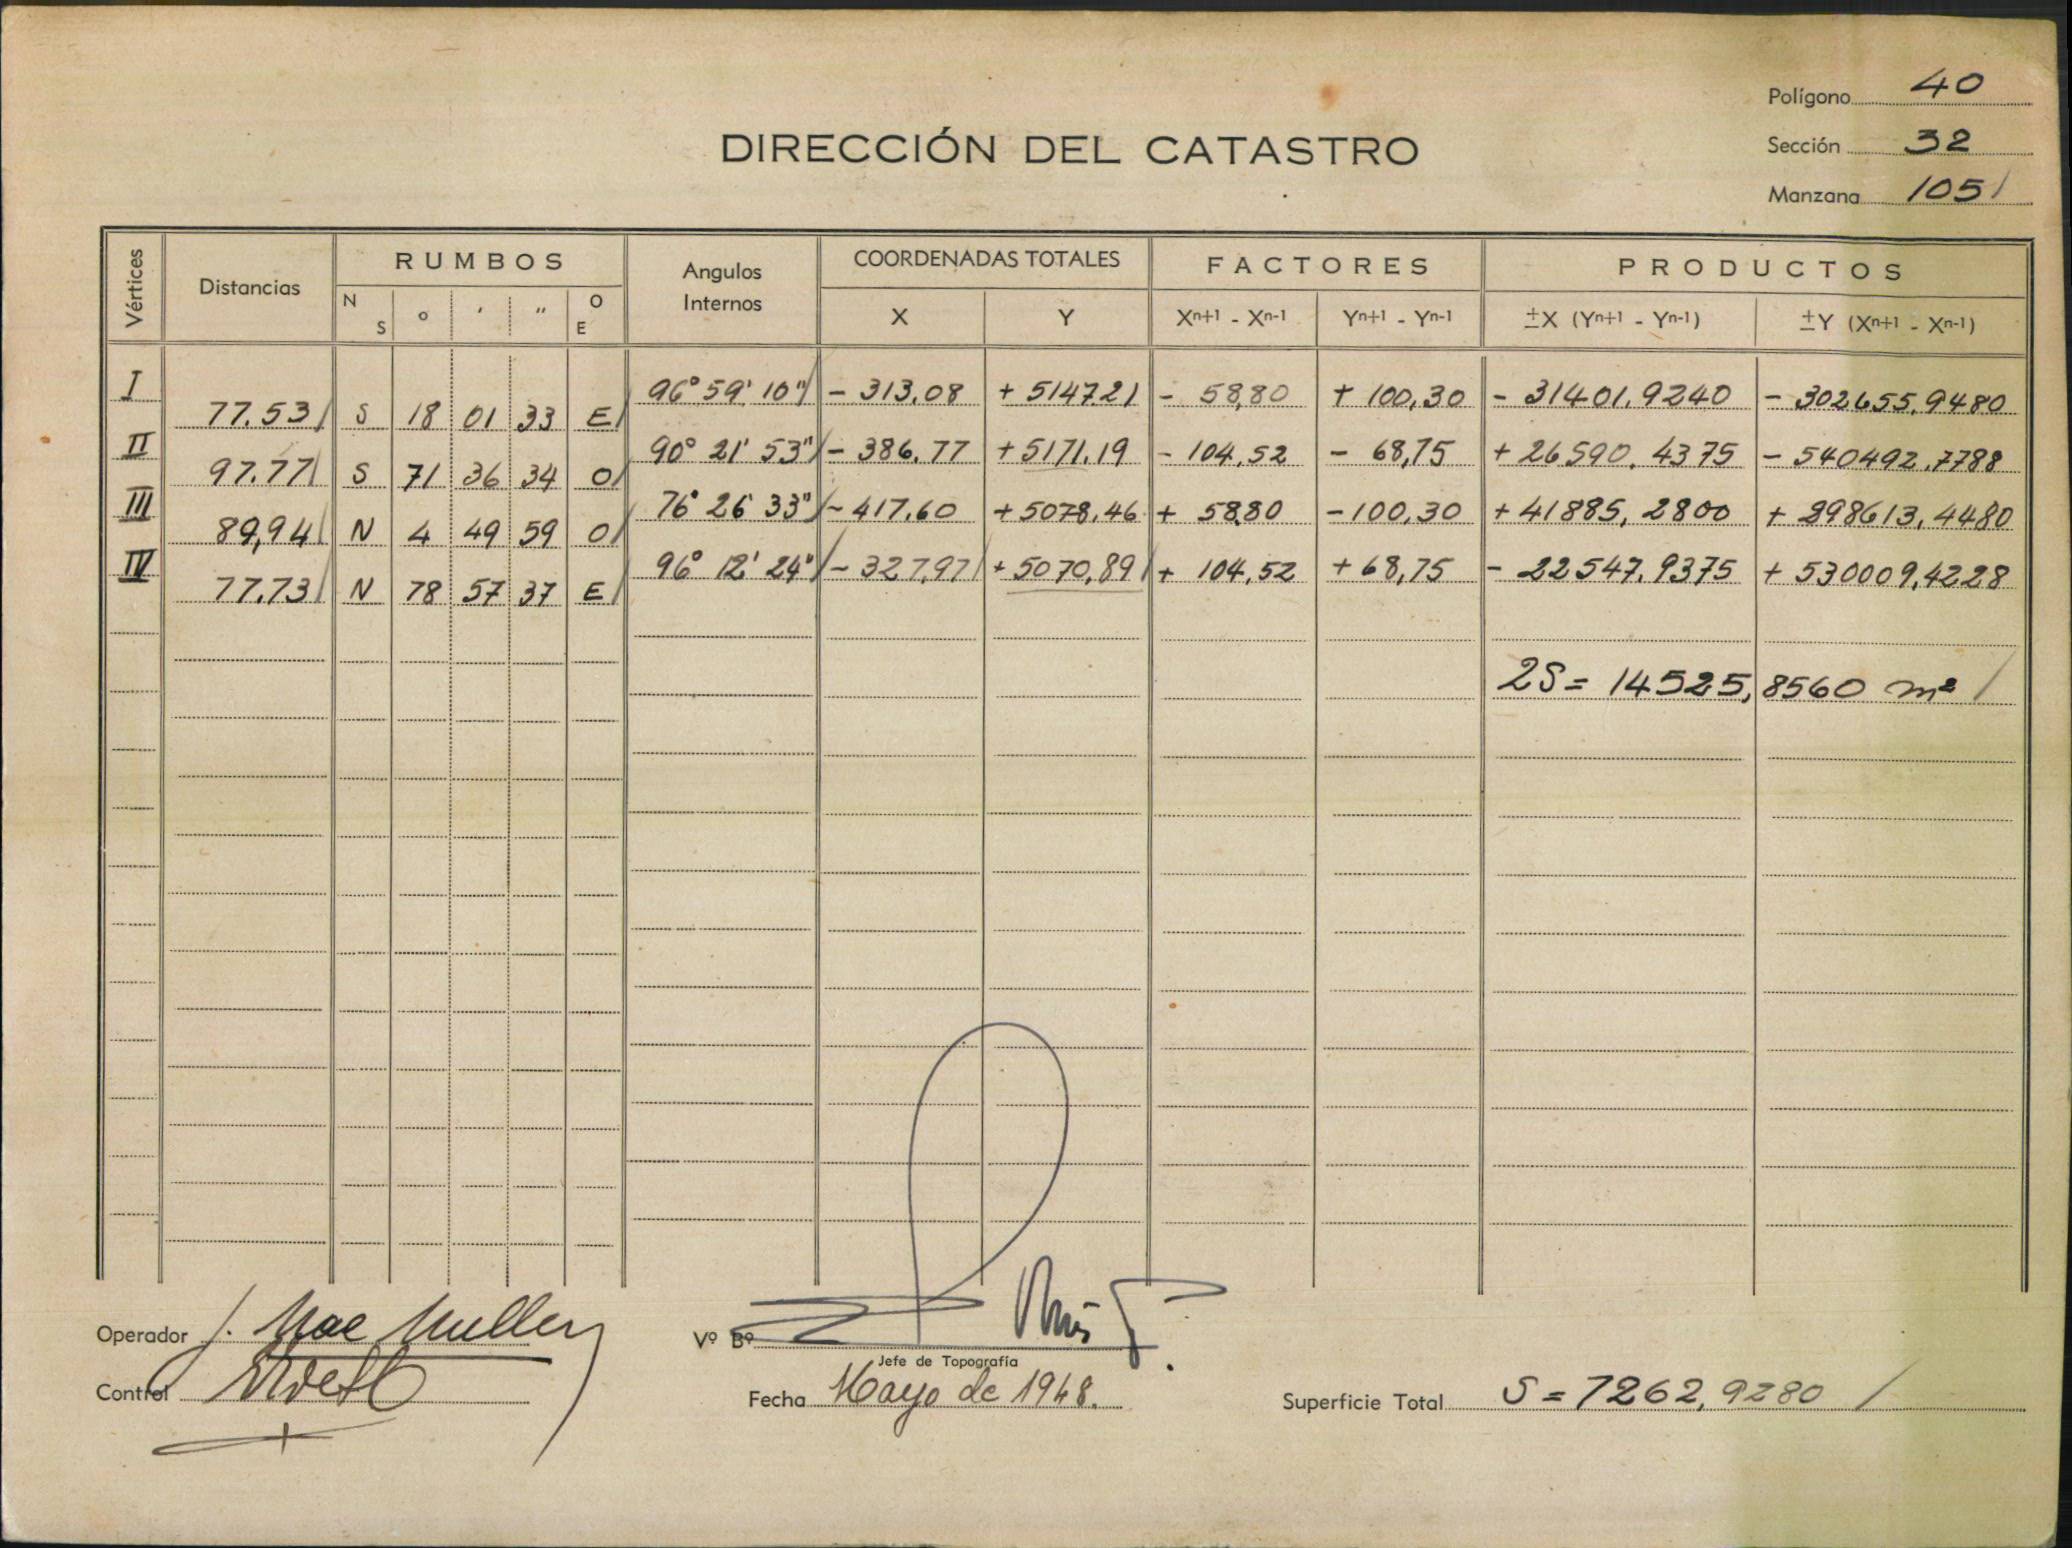 Polígono 40
DIRECCIÓN DEL CATASTRO
Sección 32
Manzana 105
Vértices Distancias RUMBOS Angulos Internos COORDENADAS TOTALES FACTORES PRODUCTOS
N S ° ' " O E X Y Xn+1 - Xn-1 Yn+1 - Yn-1 ±X (Yn+1 - Yn-1) ±Y (Xn+1 - Xn-1)
I 96° 59' 10" - 313,08 + 5147,21 - 58,80 + 100,30 - 31401,9240 - 302655,9480
77.53 S 18 01 33 E
II 90° 21' 53" - 386,77 + 5171,19 - 104,52 - 68,75 + 26590,4375 - 540492,7788
97.77 S 71 36 34 O
III 76° 26' 33" - 417,60 + 5078,46 + 58,80 - 100,30 + 41885,2800 + 298613,4480
89,94 N 4 49 59 O
IV 96° 12' 24" - 327,97 + 5070,89 + 104,52 + 68,75 - 22547,9375 + 530009,4228
77.73 N 78 57 37 E
2S = 14525,8560 m²
Operador J. Mac Mullen
Vº Bº
Jefe de Topografía
Control
Fecha Mayo de 1948.
Superficie Total S = 7262,9280